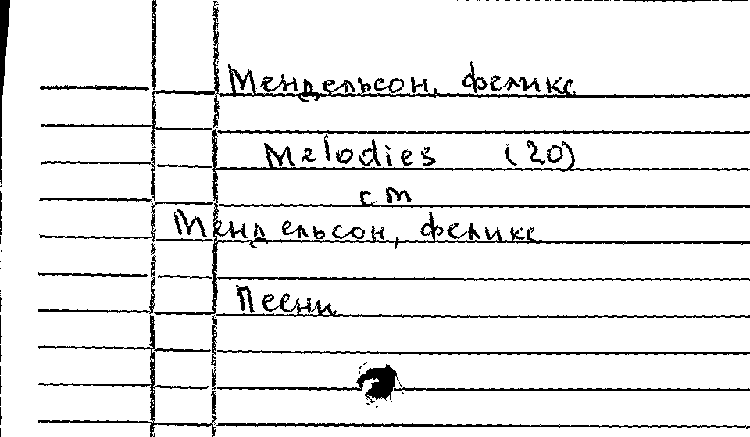 Мендельсон, Феликс
Melodies (20)
см
Мендельсон, Феликс
Песни